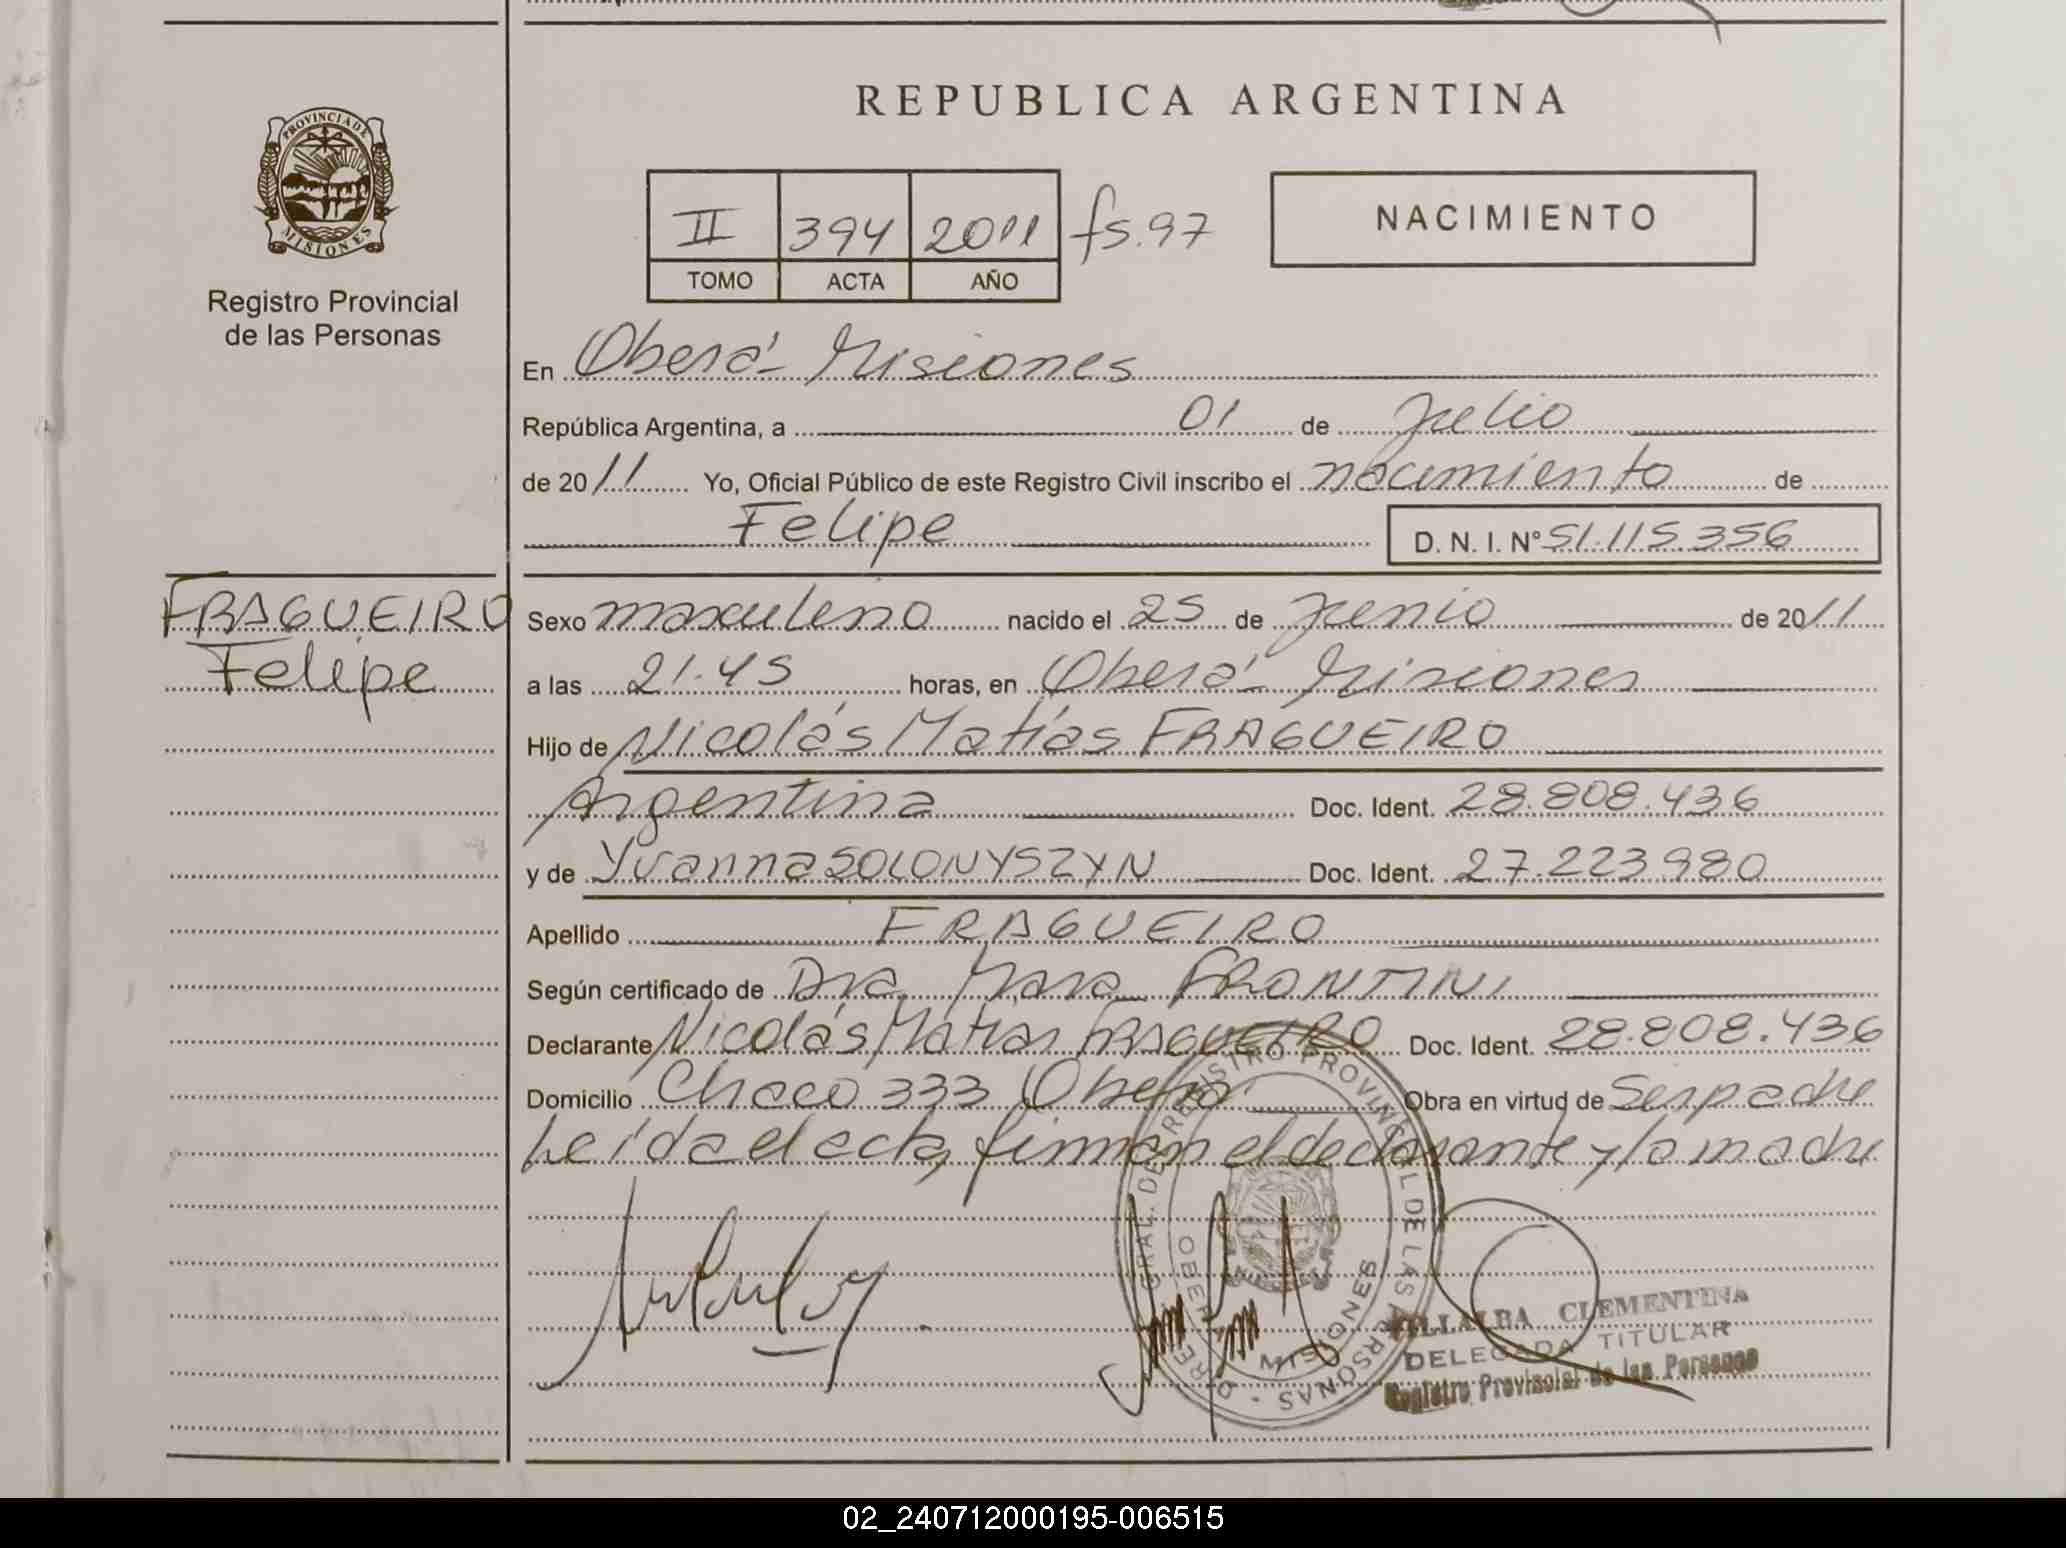 REPUBLICA ARGENTINA
PROVINCIA DE MISIONES
Registro Provincial
de las Personas
II 394 2011 fs. 97
TOMO ACTA AÑO
NACIMIENTO
En Oberá - Misiones
República Argentina, a 01 de Julio
de 2011 Yo, Oficial Público de este Registro Civil inscribo el nacimiento de
Felipe D. N. I. N° 51.115.356
FRAGUEIRO
Felipe
Sexo masculino nacido el 25 de Junio de 2011
a las 21.45 horas, en Oberá - Misiones
Hijo de Nicolás Matías FRAGUEIRO
Argentina Doc. Ident. 28.808.436
y de Yvanna SOLONYSZYN Doc. Ident. 27.223.980
Apellido FRAGUEIRO
Según certificado de Dra. Mara FRONTINI
Declarante Nicolás Matías FRAGUEIRO Doc. Ident. 28.808.436
Domicilio Chaco 333 Oberá Obra en virtud de Ser padre
Leída el acta, firman el declarante y la madre
GRAL. DE REGISTRO PROVINCIAL DE LAS PERSONAS
OBERÁ MISIONES
VILLALBA CLEMENTINA
DELEGADA TITULAR
Registro Provincial de las Personas
02_240712000195-006515